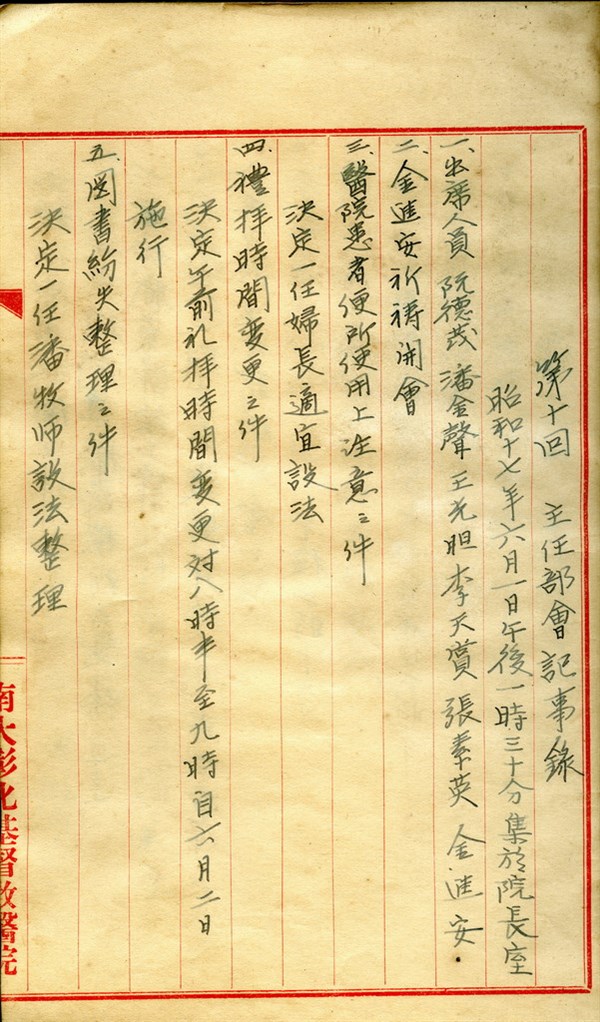 第十回　主任部會記事錄
昭和十七年六月一日午後一時三十分集於院長室
一、出席人員 阮德茂 潘金聲 王光胆 李天賞 張素英 金進安.
二、金進安祈禱開會
三、醫院患者便所使用上注意之件
決定一任婦長適宜設法
四、禮拜時間變更之件
決定午前礼拜時間変更对八時半至九時自六月二日
施行
五、図書紛失整理之件
決定一任潘牧师設法整理
南大彰化基督教醫院